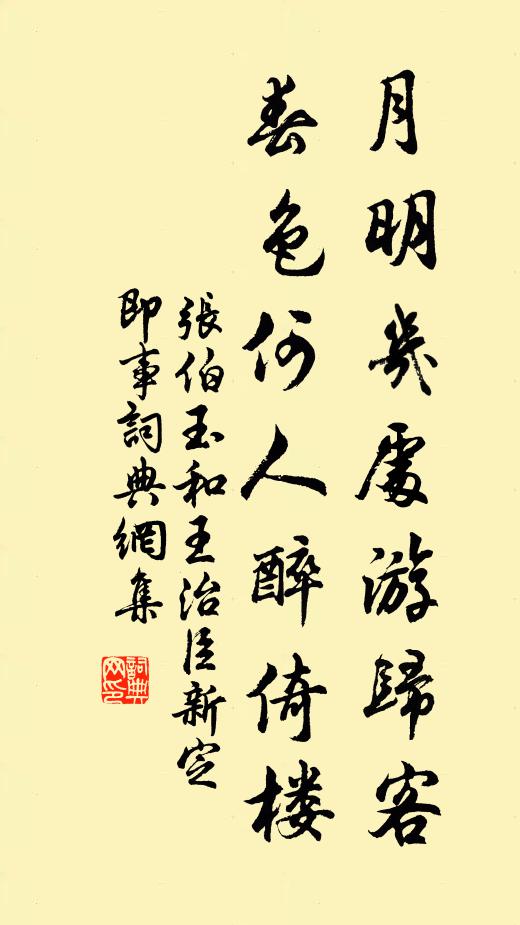 月明几處游歸客
春色何人醉倚楼
張伯玉和王治臣新定
即事詞典網集
詞典网印